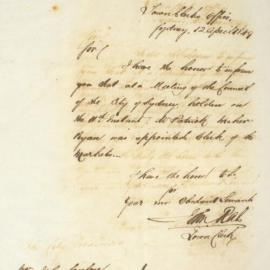 Town Clerks Office,
Sydney, 12 April 1849
Sir
I have the honor to inform
you that at a Meeting of the Council
of the City of Sydney, holden on
the 11th Instant, Mr Patrick
Ryan was appointed Clerk of the
Markets.
I have the honor to be
Your Obedient Servant
Town Clerk